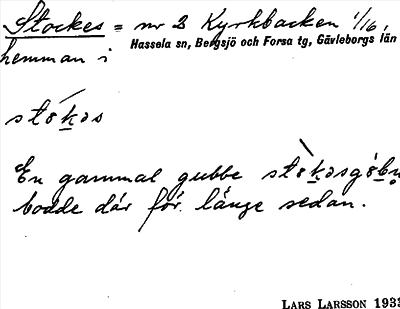 Stockes = nr 2 Kyrkbacken 1/16,
Hassela sn, Bergsjö och Forsa tg, Gävleborgs län
hemman i
stókəs
En gammal gubbe stòkəsgób̥n
bodde där för länge sedan.
LARS LARSSON 1933